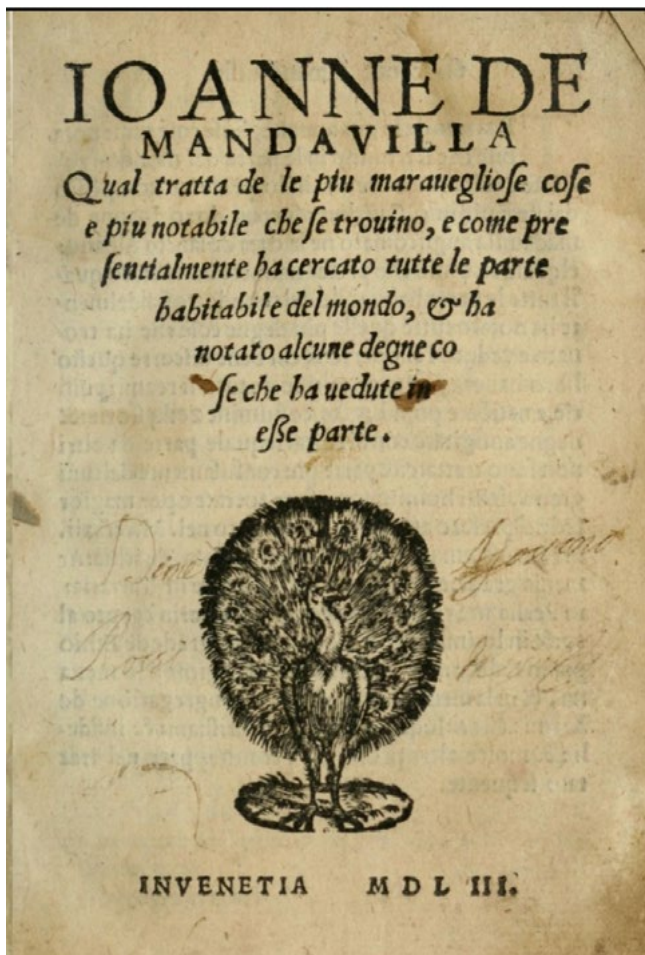 IOANNE DE
MANDAVILLA
Qual tratta de le piu marauegliose cose
e piu notabile che se trouino, e come pre
sentialmente ha cercato tutte le parte
habitabile del mondo, & ha
notato alcune degne co
se che ha uedute in
esse parte.
INVENETIA MDLIII.